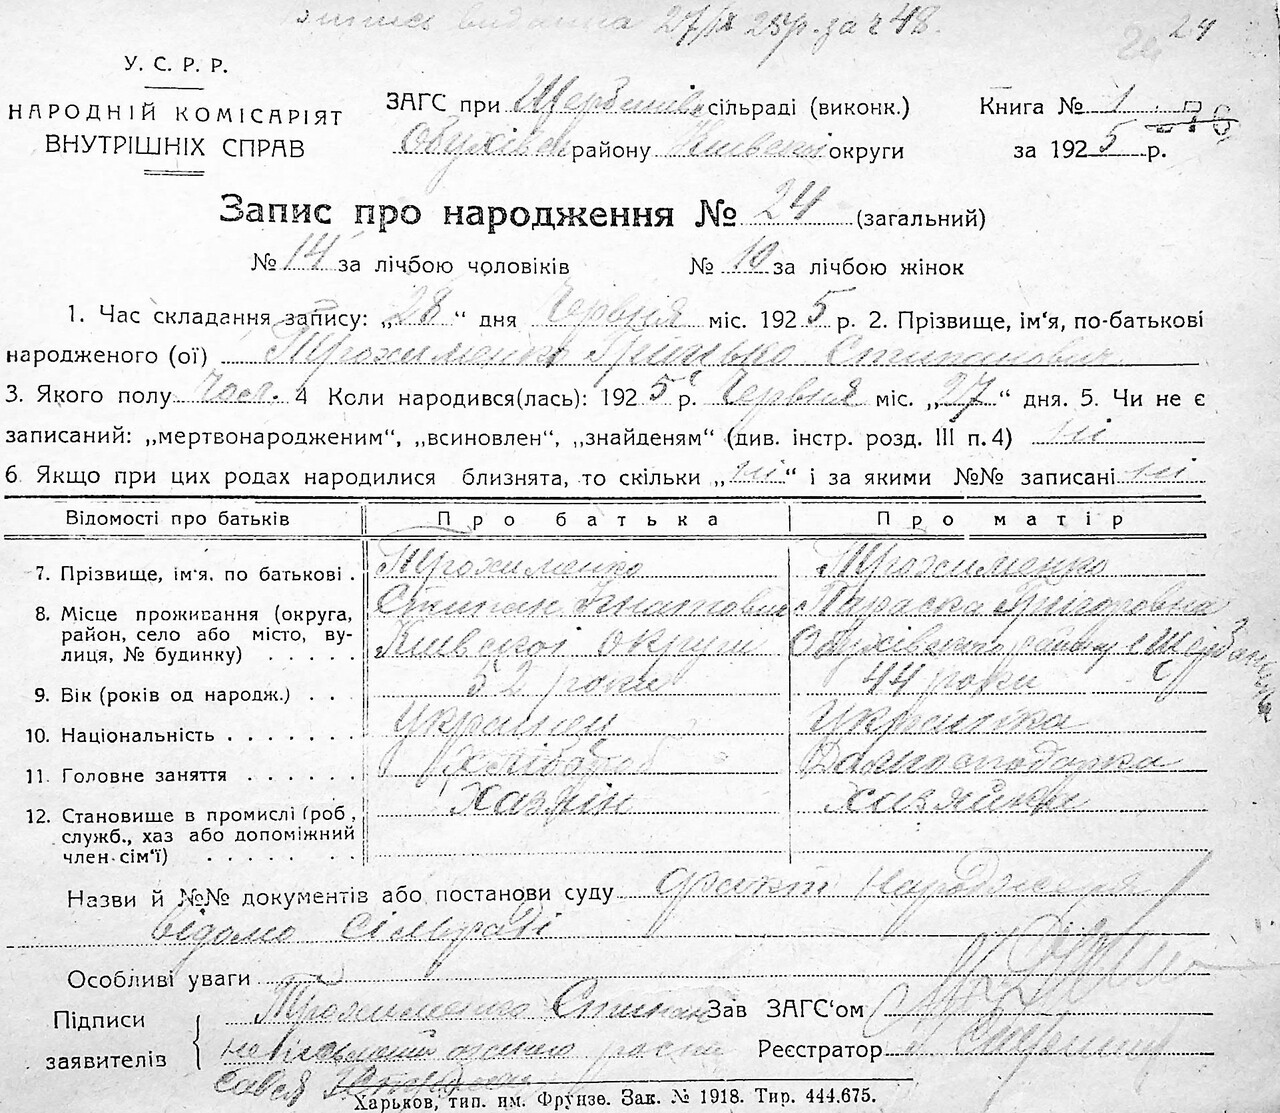 Витпись видана 27/ІХ 25р. за ч 48. 24
У. С. Р. Р.
НАРОДНІЙ КОМІСАРІЯТ
ВНУТРІШНІХ СПРАВ
ЗАГС при Щербанівс сільраді (виконк.)
Обухівск району Київської округи
Книга № 1
за 1925 р.
Запис про народження № 24 (загальний)
№ 14 за лічбою чоловіків № 10 за лічбою жінок
1. Час складання запису: „28“ дня Червня міс. 1925 р. 2. Прізвище, ім‘я, по-батькові
народженого (ої) Трохименко Гринько Стипанович
3. Якого полу Чол. 4 Коли народився(лась): 1925 р. Червня міс. „27“ дня. 5. Чи не є
записаний: „мертвонародженим“, „всиновлен“, „знайденям“ (див. інстр. розд. III п. 4) ні
6 Якщо при цих родах народилися близнята, то скільки „ні“ і за якими №№ записані ні
Відомості про батьків Про батька Про матір
7. Прізвище, ім‘я, по батькові . Трохименко Трохименко
8. Місце проживання (округа, район, село або місто, вулиця, № будинку) . . . . . Стипан Гнатович Параска Григоровна
Київської округи Обухівського району с Щербанівка
9. Вік (років од народж.) . . . 52 роки 44 роки
10. Національність . . . . . . . Українец Українка
11. Головне заняття . . . . . . Хлібороб Домгосподарка
12. Становище в промислі (роб, служб., хаз або допоміжний член-сім‘ї) . . . . . . . Хазяін хазяйка
Назви й №№ документів або постанови суду факт народження
відомо сільраді
Особливі уваги
Підписи
заявителів
Трохименко Стипан
неписьменний
Зав ЗАГС‘ом
Реєстратор
Харьков, тип. им. Фрунзе. Зак. № 1918. Тир. 444.675.